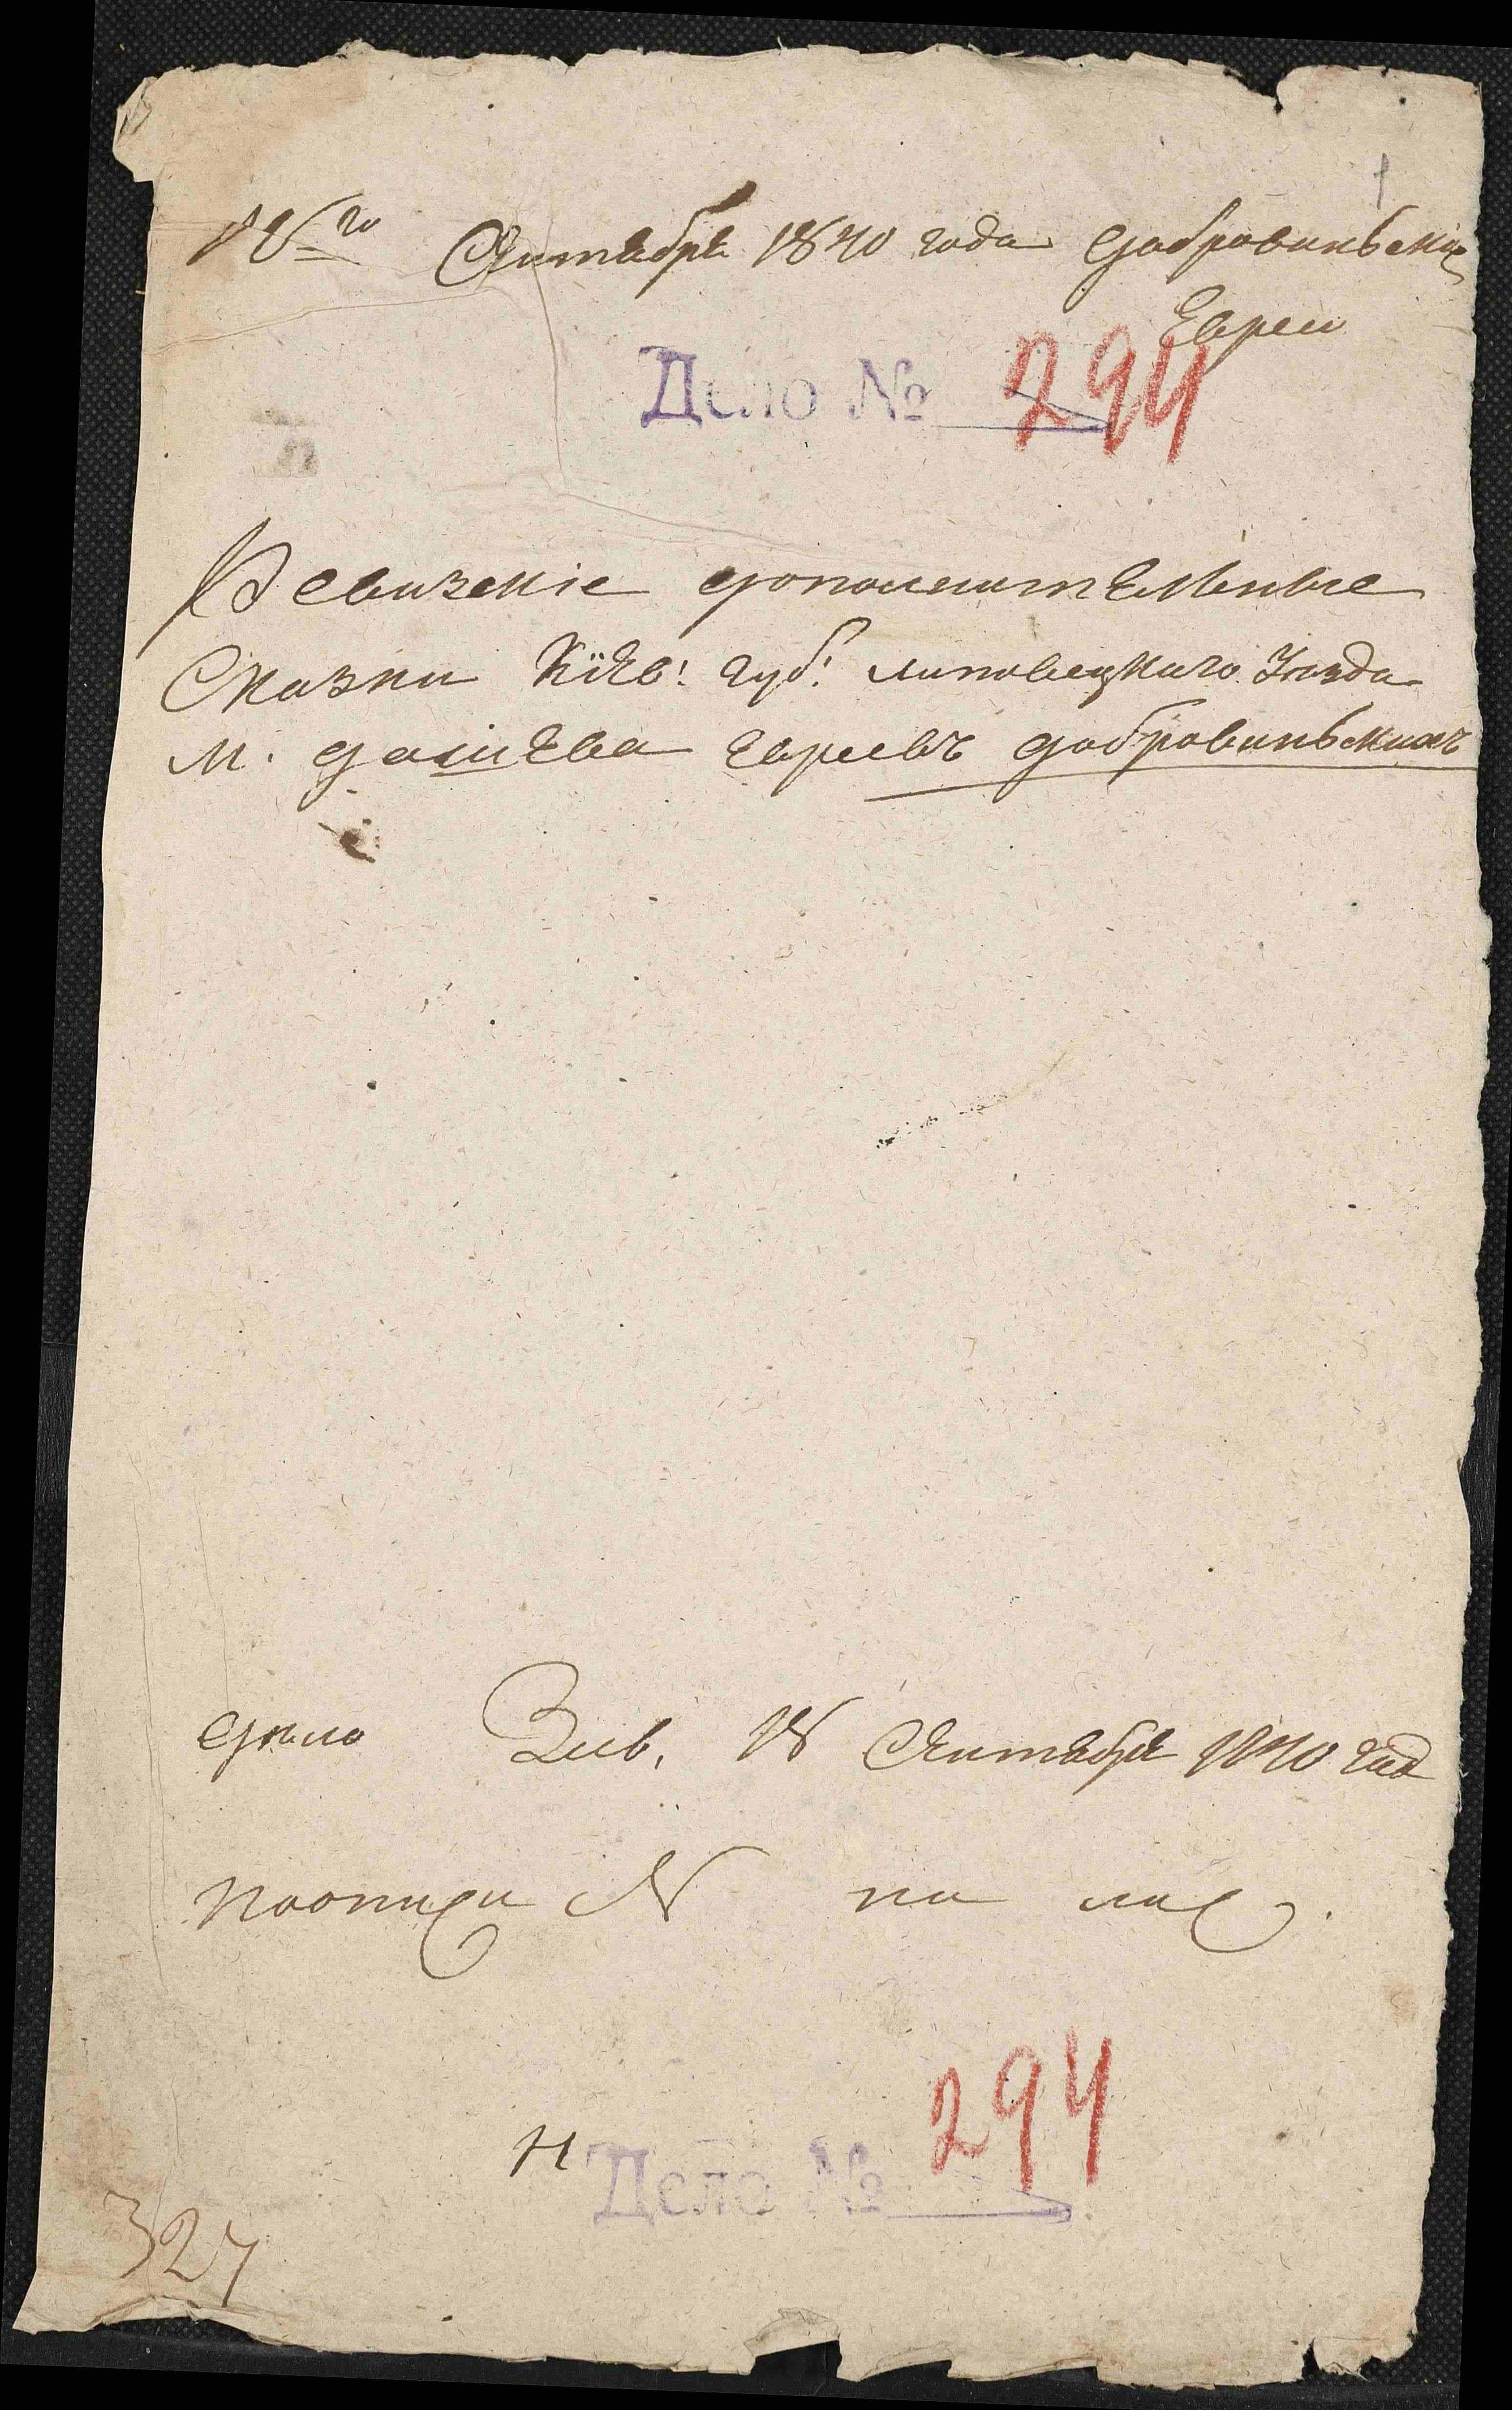 18го Сентября 1840 года Добровинские
Евреи
Дело № 294
Ревизские дополнительные
Сказки Кіев: губ: Липовецкаго Уезда
м. Дашева Евреевъ Добровинскихъ
Дело 18 Сентября 1840 год
по описи № на лис.
Дело № 294
327